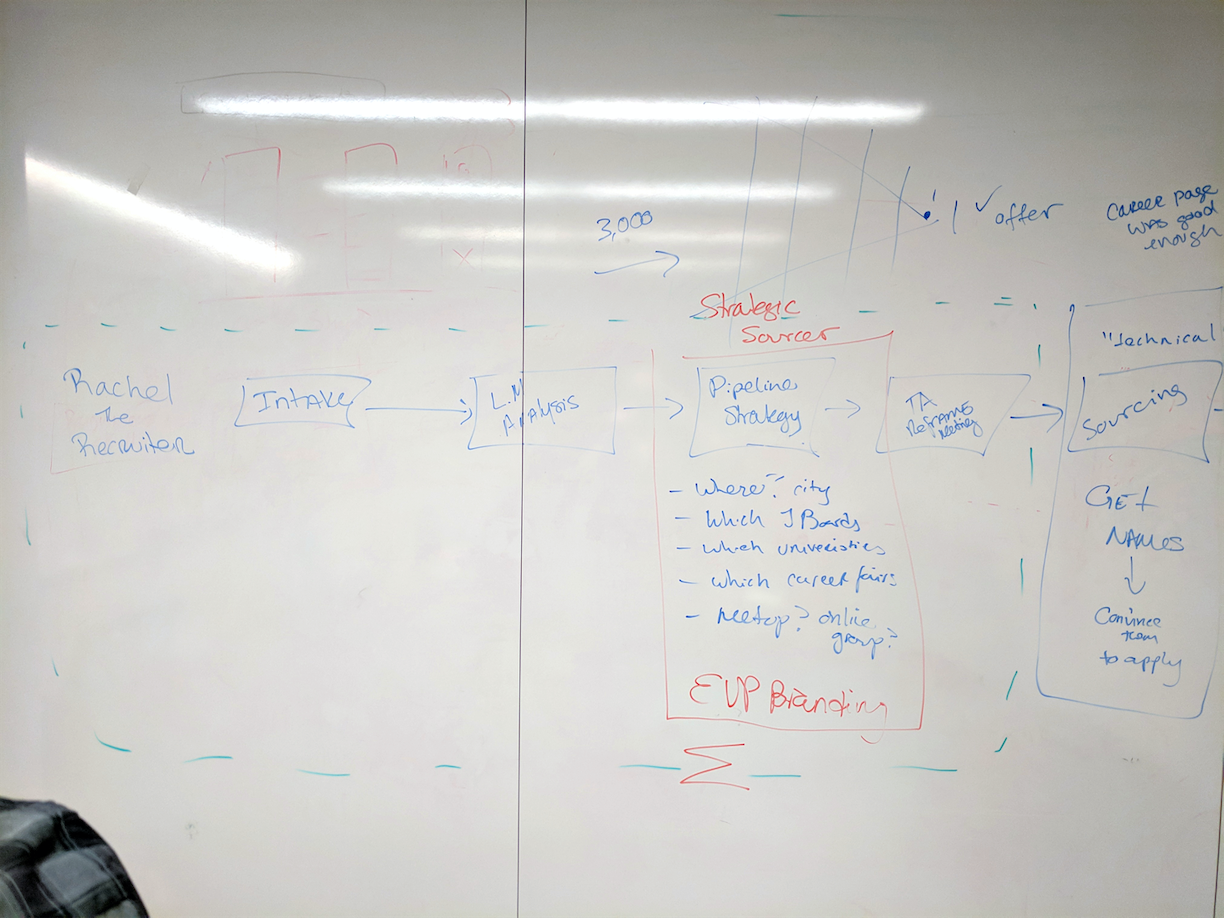 3,000
1 ✓ offer
Career page
was good
enough
Strategic
Sourcer
Rachel
the
Recruiter
Intake
L.M
Analysis
Pipeline
Strategy
TA
Reframe
Meeting
"Technical
Sourcing
- Where? city
- Which J Boards
- which univeristies
- which career fairs
- Meetup? online
group?
EVP Branding
Σ
GET
NAMES
↓
Convince
them
to apply